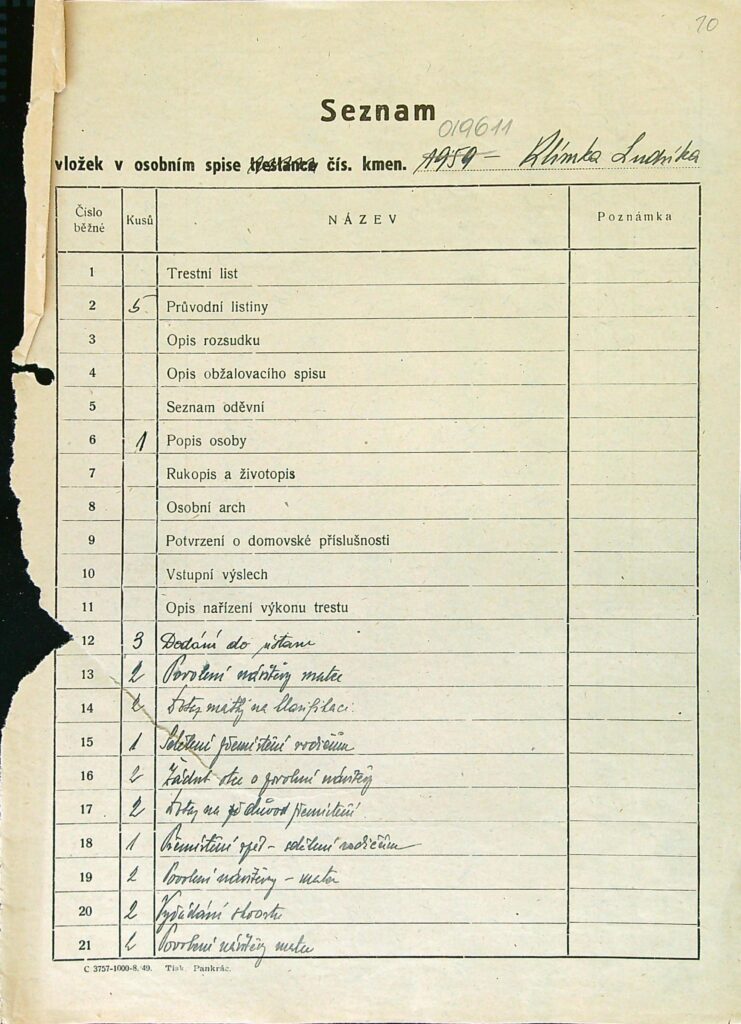 10
Seznam
019611
vložek v osobním spise trestance čís. kmen. 1959 - Klimka Ludvíka
Číslo běžné Kusů NÁZEV Poznámka
1 Trestní list
2 5 Průvodní listiny
3 Opis rozsudku
4 Opis obžalovacího spisu
5 Seznam oděvní
6 1 Popis osoby
7 Rukopis a životopis
8 Osobní arch
9 Potvrzení o domovské příslušnosti
10 Vstupní výslech
11 Opis nařízení výkonu trestu
12 3 Dodání do ústavu
13 2 Povolení návštěvy matce
14 2 Dotaz matky na klasifikaci
15 1 Sdělení přemístění rodičům
16 2 Žádost otce o povolení návštěvy
17 2 Dotaz na důvod přemístění
18 1 Přemístění zpět - sdělení rodičům
19 2 Povolení návštěvy - matce
20 2 Vyžádání
21 2 Povolení návštěvy matce
C 3757-1000-8.'49. Tisk. Pankrác.